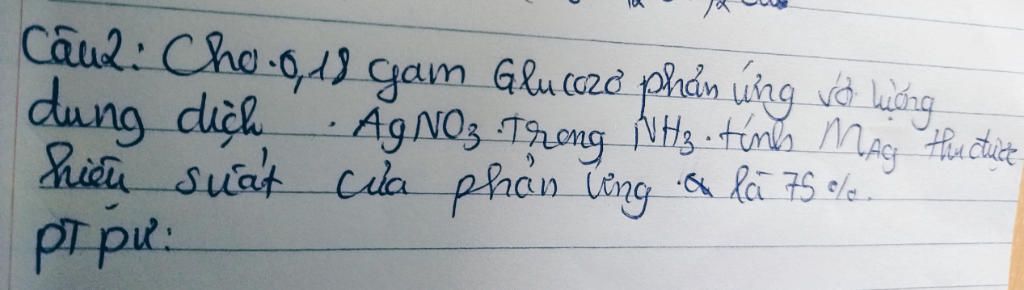 Câu2: Cho 0,18 gam Glucozơ phản ứng với lượng
dung dịch AgNO3 Trong NH3 tính MAg thu được
hiệu suất của phản ứng là 75%.
PT pư: